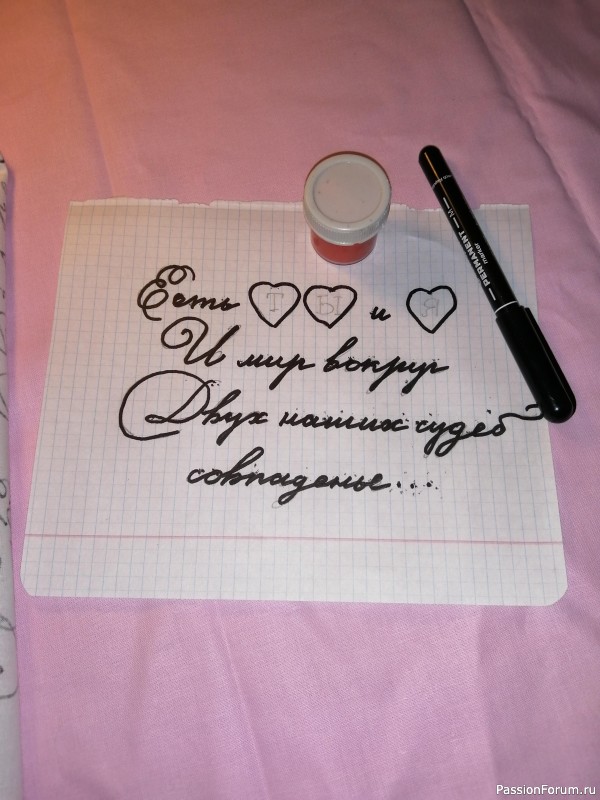 Есть ТЫ и Я
И мир вокруг
Двух наших судеб
совпаденье...
PERMANENT
marker
M
PassionForum.ru